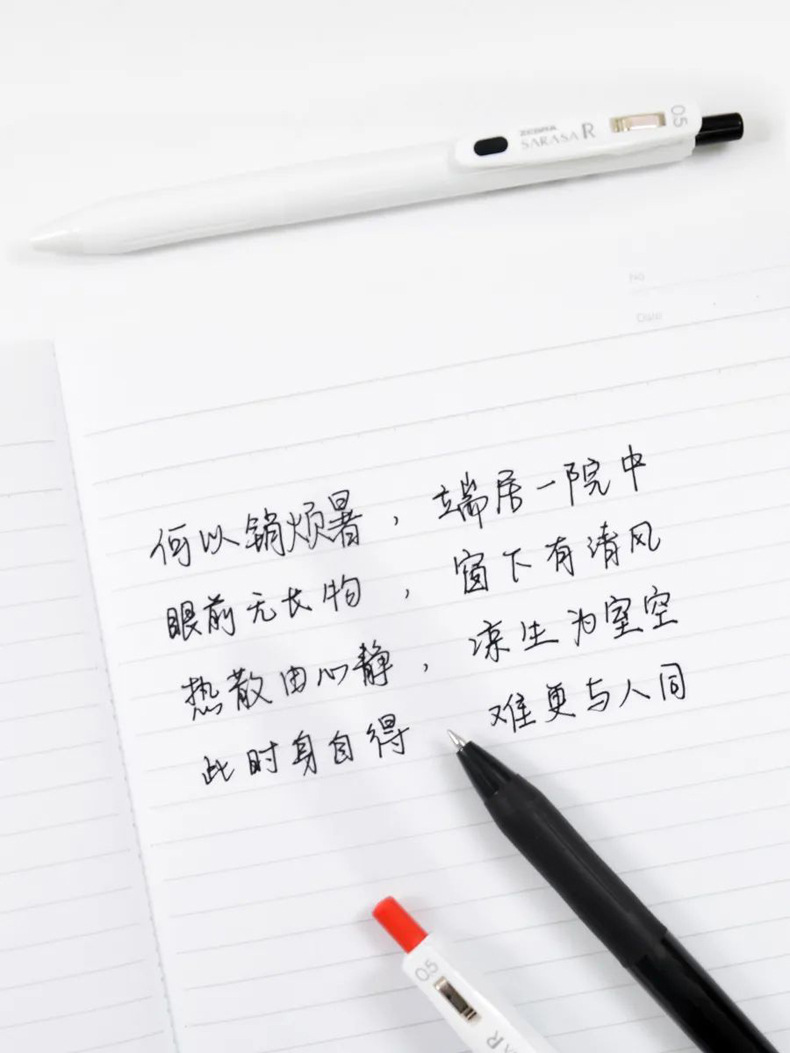 ZEBRA
SARASA R
0.5
No
Date
何以销烦暑，端居一院中
眼前无长物，窗下有清风
热散由心静，凉生为室空
此时身自得 难更与人同
0.5
R